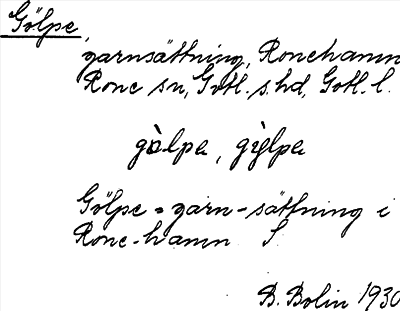 Gölpe,
garnsättning, Ronehamn
Rone sn, Gotl. s. hd, Gotl. l.
gò̀lpa, gỳlpa
Gölpe = garn-sättning i
Rone-hamn S.
B. Bolin 1930